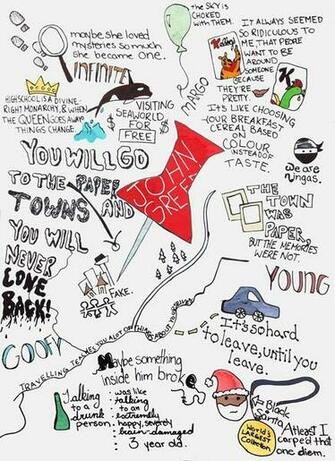 the SKY is
CHOKED
with THEM.
maybe, she loved
mysteries so much
she became one.
INFINITE
MARGO
IT ALWAYS SEEMED
SO RIDICULOUS TO
ME, THAT PEOPLE
WANT TO BE
AROUND
SOMEONE
BECAUSE
THEY'RE
PRETTY.
IT'S LIKE CHOOSING
YOUR BREAKFAST
CEREAL BASED
ON
COLOUR
INSTEAD OF
TASTE.
HIGHSCHOOL IS A DIVINE-
RIGHT MONARCHY, & WHEN
THE QUEEN GOES AWAY
THINGS CHANGE.
VISITING
SEAWORLD
FOR
FREE
$
$
we are
ningas.
JOHN
GREEN
YOU WILL GO
TO THE PAPER
TOWNS AND
YOU WILL
NEVER
COME
BACK!
THE
TOWN
WAS
PAPER,
BUT THE MEMORIES
WERE NOT.
FAKE.
GOOFY
YOUNG
It's so hard
to leave, until you
leave.
Maybe something
inside him broke
Talking
to a
drunk
person.
was like
talking
to an
extremely
happy, severely
brain-damaged
3 year old.
Black
Santa
WORLD'S
LARGEST
Collection
At least I
carped that
one diem.